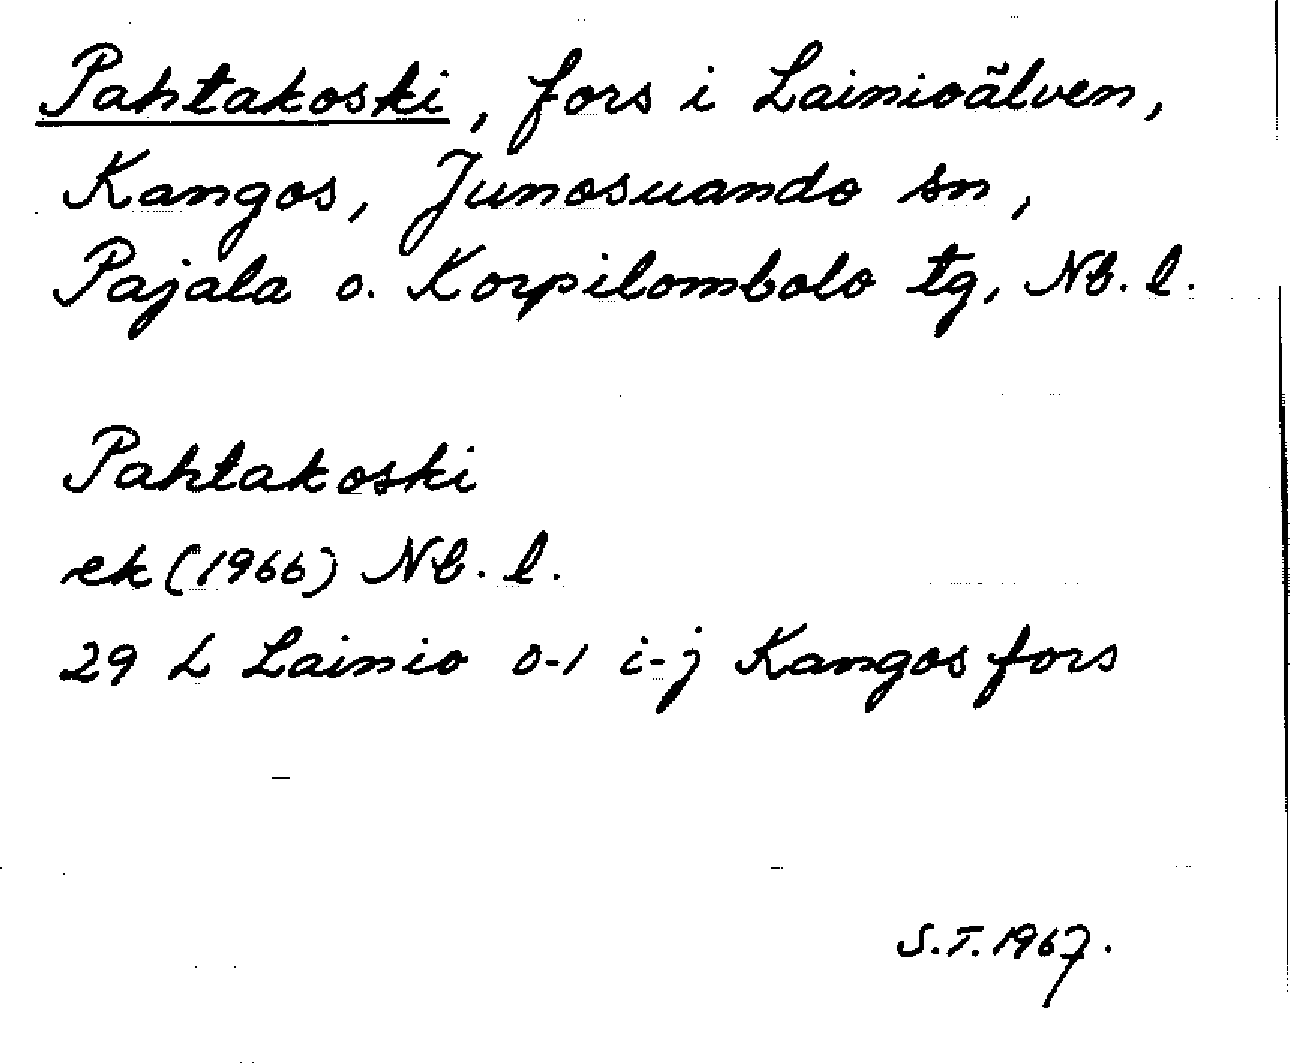 Pahtakoski, fors i Lainioälven,
Kangos, Junosuando sn,
Pajala o. Korpilombolo tg, Nb. l.
Pahtakoski
ek (1966) Nb. l.
29 L Lainio 0-1 i-j Kangos fors
S.T. 1967.